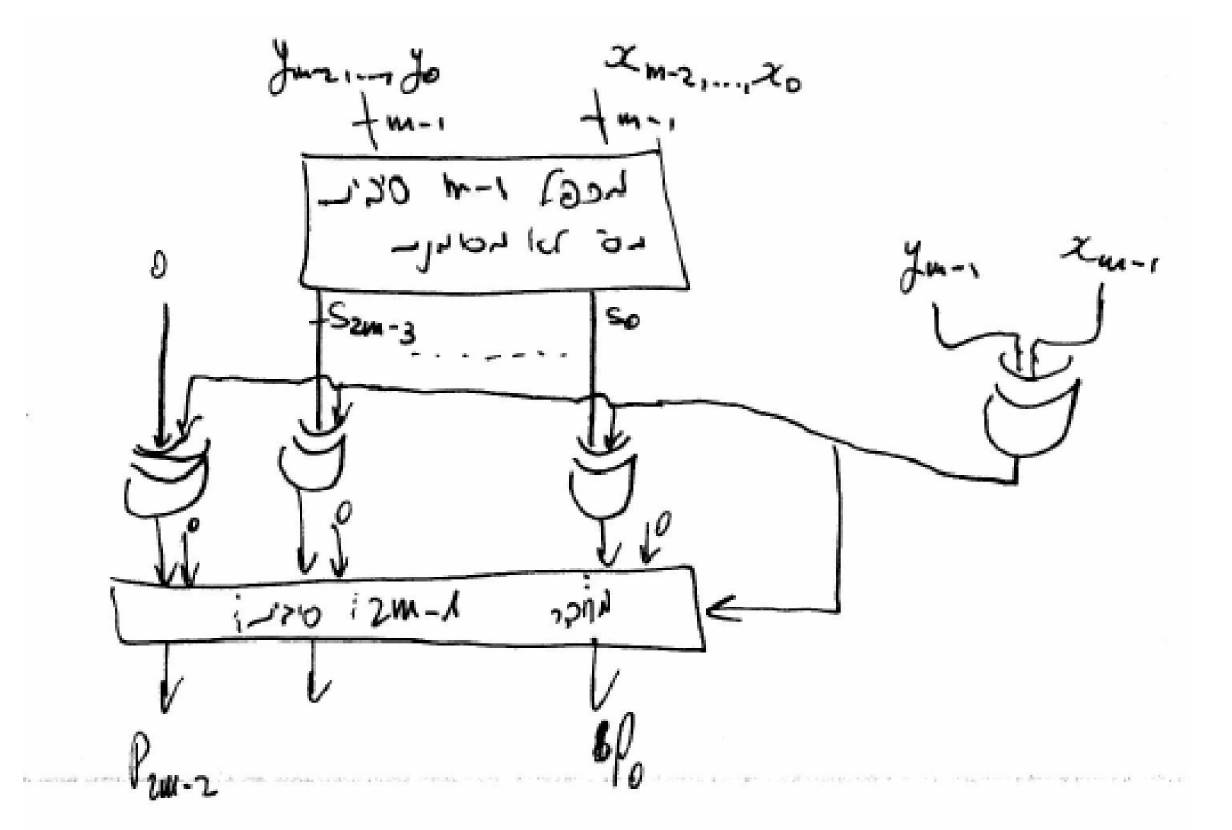 y_{m-2},...,y_0
x_{m-2},...,x_0
m-1
m-1
מכפל m-1 סיביות
מס׳ לא מסומנים
0
y_{m-1}
x_{m-1}
S_{2m-3}
S_0
.......
0
0
0
מחבר 2m-1 סיביות
P_{2m-2}
P_0